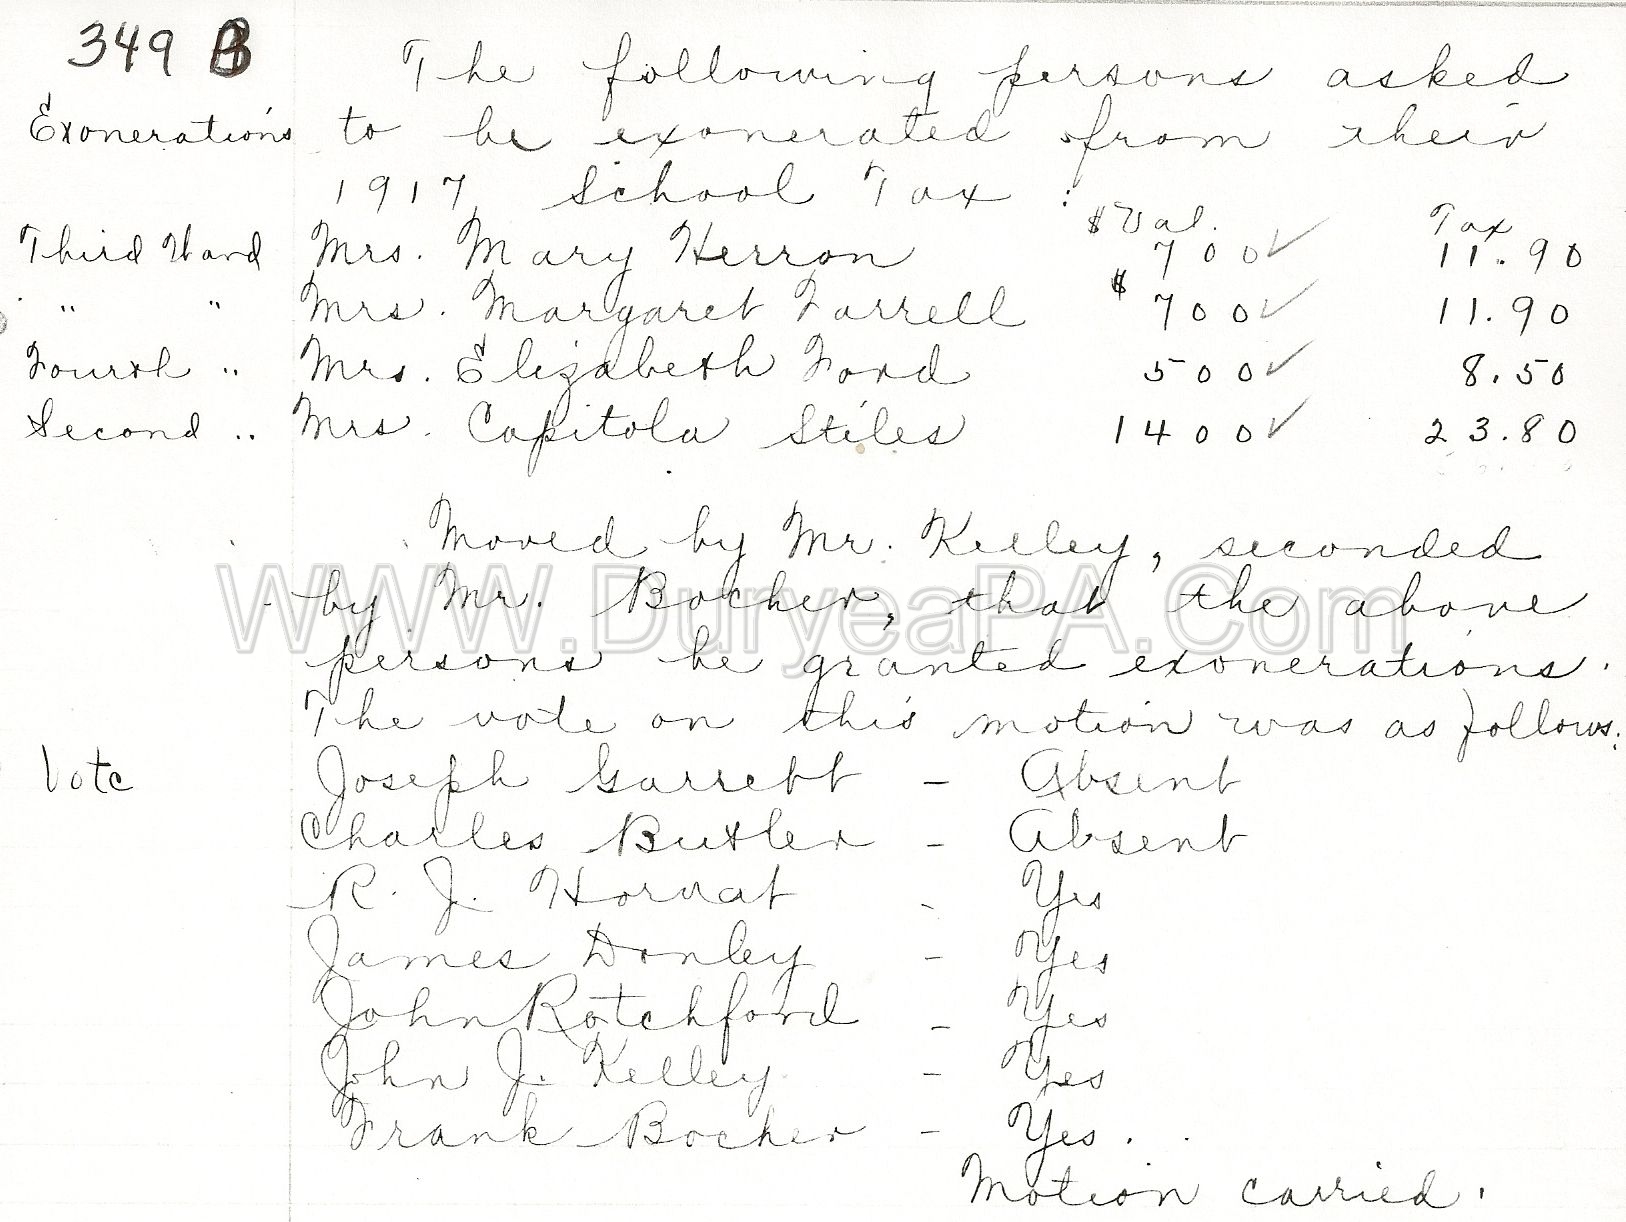 349 B
The following persons asked
Exonerations to be exonerated from their
1917 School Tax :
$ Val. Tax
Third Ward Mrs. Mary Herron 700 ✓ 11.90
" " Mrs. Margaret Farrell $ 700 ✓ 11.90
Fourth " Mrs. Elizabeth Ford 500 ✓ 8.50
Second " Mrs. Capitola Stiles 1400 ✓ 23.80
Moved by Mr. Kelley, seconded
by Mr. Bocher, that the above
WWW.DuryeaPA.Com
persons be granted exonerations.
The vote on this motion was as follows:
Vote Joseph Garrett - Absent
Charles Butler - Absent
R. J. Horvat - Yes
James Donley - Yes
John Rotchford - Yes
John J. Kelley - Yes
Frank Bocher - Yes.
Motion carried.